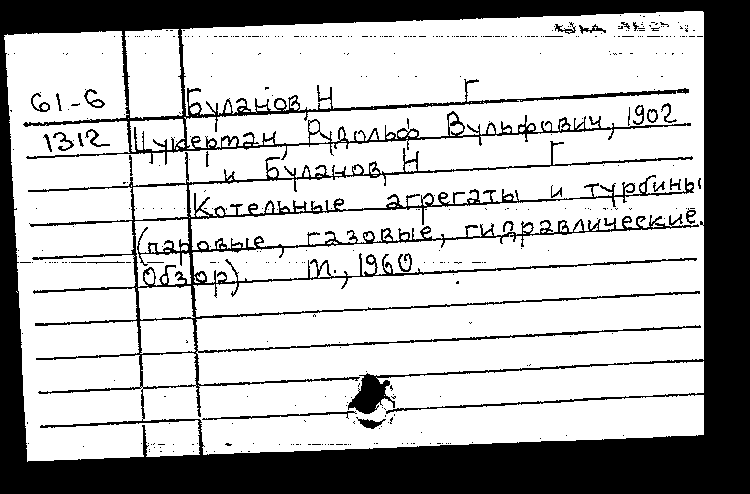 61-6 Буланов, Н Г
1312 Цукерман, Рудольф Вульфович, 1902
и Буланов, Н Г
Котельные агрегаты и турбины
(паровые, газовые, гидравлические.
Обзор). М., 1960.